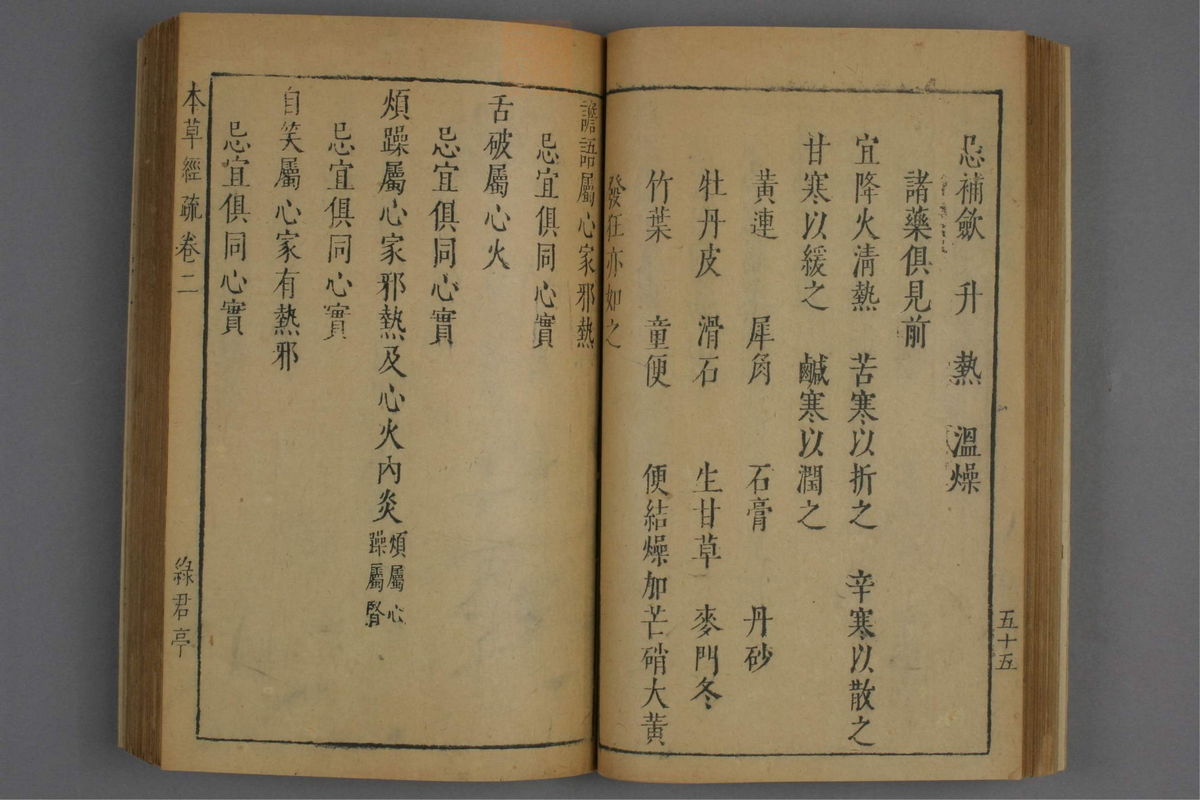 忌補斂 升 熱 溫燥
諸藥俱見前
宜降火清熱 苦寒以折之 辛寒以散之
甘寒以緩之 鹹寒以潤之
黃連 犀角 石膏 丹砂
牡丹皮 滑石 生甘草 麥門冬
竹葉 童便 便結燥加芒硝大黃
發狂亦如之
五十五
譫語屬心家邪熱
忌宜俱同心實
舌破屬心火
忌宜俱同心實
煩躁屬心家邪熱及心火內炎
煩屬心
躁屬腎
忌宜俱同心實
自笑屬心家有熱邪
忌宜俱同心實
本草經疏 卷二
綠君亭